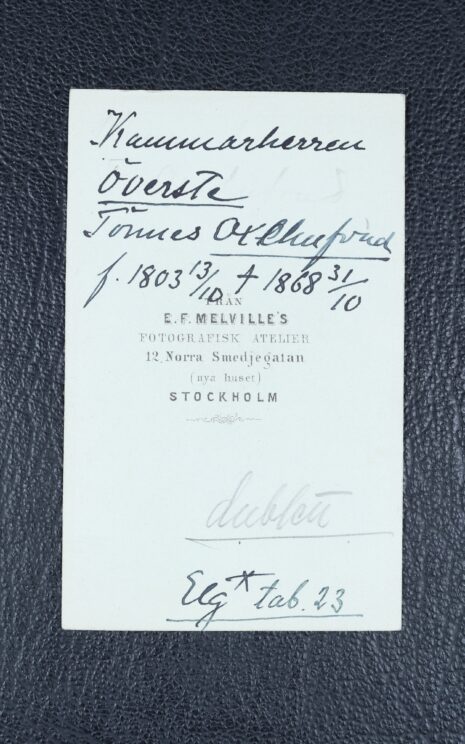 Kammarherren
Överste
Tönnes Oxehufvud
f. 1803 13/10 † 1868 31/10
FRÅN
E. F. MELVILLE'S
FOTOGRAFISK ATELIER
12, Norra Smedjegatan
(nya huset)
STOCKHOLM
dublett
Elg* tab. 23